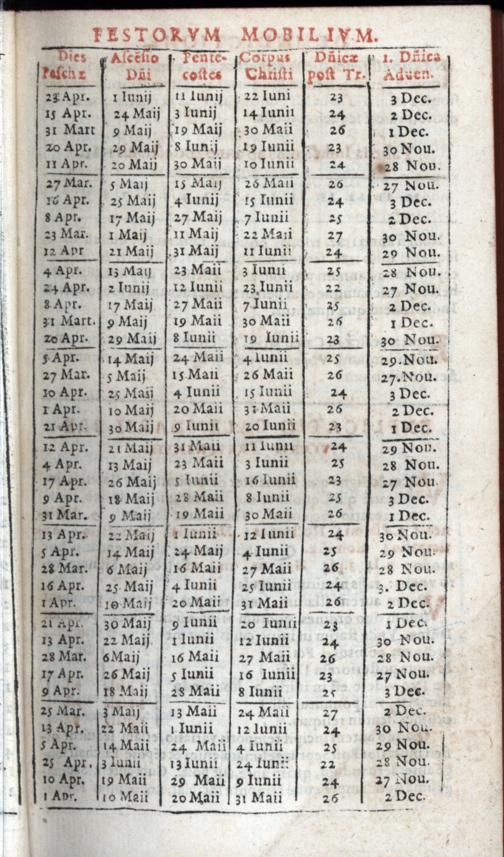 FESTORVM MOBILIVM.
Dies Ascẽsio Pente- Corpus Dñicæ 1. Dñica
Paschæ Dñi costes Christi post Tr. Aduen.
23 Apr. 1 Iunij 11 Iunij 22 Iuni 23 3 Dec.
15 Apr. 24 Maij 3 Iunij 14 Iunii 24 2 Dec.
31 Mart 9 Maij 19 Maij 30 Maii 26 1 Dec.
20 Apr. 29 Maij 8 Iunij 19 Iunii 23 30 Nou.
11 Apr. 20 Maij 30 Maii 10 Iunii 24 28 Nou.
27 Mar. 5 Maij 15 Maij 26 Maii 26 27 Nou.
16 Apr. 25 Maij 4 Iunij 15 Iunii 24 3 Dec.
8 Apr. 17 Maij 27 Maij 7 Iunii 25 2 Dec.
23 Mar. 1 Maij 11 Maij 22 Maii 27 30 Nou.
12 Apr 21 Maij 31 Maij 11 Iunii 24 29 Nou.
4 Apr. 13 Maij 23 Maii 3 Iunii 25 28 Nou.
24 Apr. 2 Iunij 12 Iunii 23 Iunii 22 27 Nou.
8 Apr. 17 Maij 27 Maii 7 Iunii 25 2 Dec.
31 Mart. 9 Maij 19 Maii 30 Maii 26 1 Dec.
20 Apr. 29 Maij 8 Iunii 19 Iunii 23 30 Nou.
5 Apr. 14 Maij 24 Maii 4 Iunii 25 29. Nou.
27 Mar. 5 Maij 15 Maii 26 Maii 26 27. Nou.
10 Apr. 25 Maij 4 Iunii 15 Iunii 24 3 Dec.
1 Apr. 10 Maij 20 Maii 31 Maii 26 2 Dec.
21 Apr. 30 Maij 9 Iunii 20 Iunii 23 1 Dec.
12 Apr. 21 Maij 31 Maii 11 Iunii 24 29 Nou.
4 Apr. 13 Maij 23 Maii 3 Iunii 25 28 Nou.
17 Apr. 26 Maij 5 Iunii 16 Iunii 23 27 Nou.
9 Apr. 18 Maij 28 Maii 8 Iunii 25 3 Dec.
31 Mar. 9 Maij 19 Maii 30 Maii 26 1 Dec.
13 Apr. 22 Maij 1 Iunii 12 Iunii 24 30 Nou.
5 Apr. 14 Maij 24 Maij 4 Iunii 25 29 Nou.
28 Mar. 6 Maij 16 Maii 27 Maii 26 28 Nou.
16 Apr. 25 Maij 4 Iunii 25 Iunii 24 3. Dec.
1 Apr. 10 Maij 20 Maii 31 Maii 26 2 Dec.
21 Apr. 30 Maij 9 Iunii 20 Iunii 23 1 Dec.
13 Apr. 22 Maij 1 Iunii 12 Iunii 24 30 Nou.
28 Mar. 6 Maij 16 Maii 27 Maii 26 28 Nou.
17 Apr. 26 Maij 5 Iunii 16 Iunii 23 27 Nou.
9 Apr. 18 Maij 28 Maii 8 Iunii 25 3 Dec.
25 Mar. 3 Maij 13 Maii 24 Maii 27 2 Dec.
13 Apr. 22 Maii 1 Iunii 12 Iunii 24 30 Nou.
5 Apr. 14 Maii 24 Maii 4 Iunii 25 29 Nou.
25 Apr. 3 Iunii 13 Iunii 24 Iunii 22 28 Nou.
10 Apr. 19 Maii 29 Maii 9 Iunii 24 27 Nou.
1 Apr. 10 Maii 20 Maii 31 Maii 26 2 Dec.